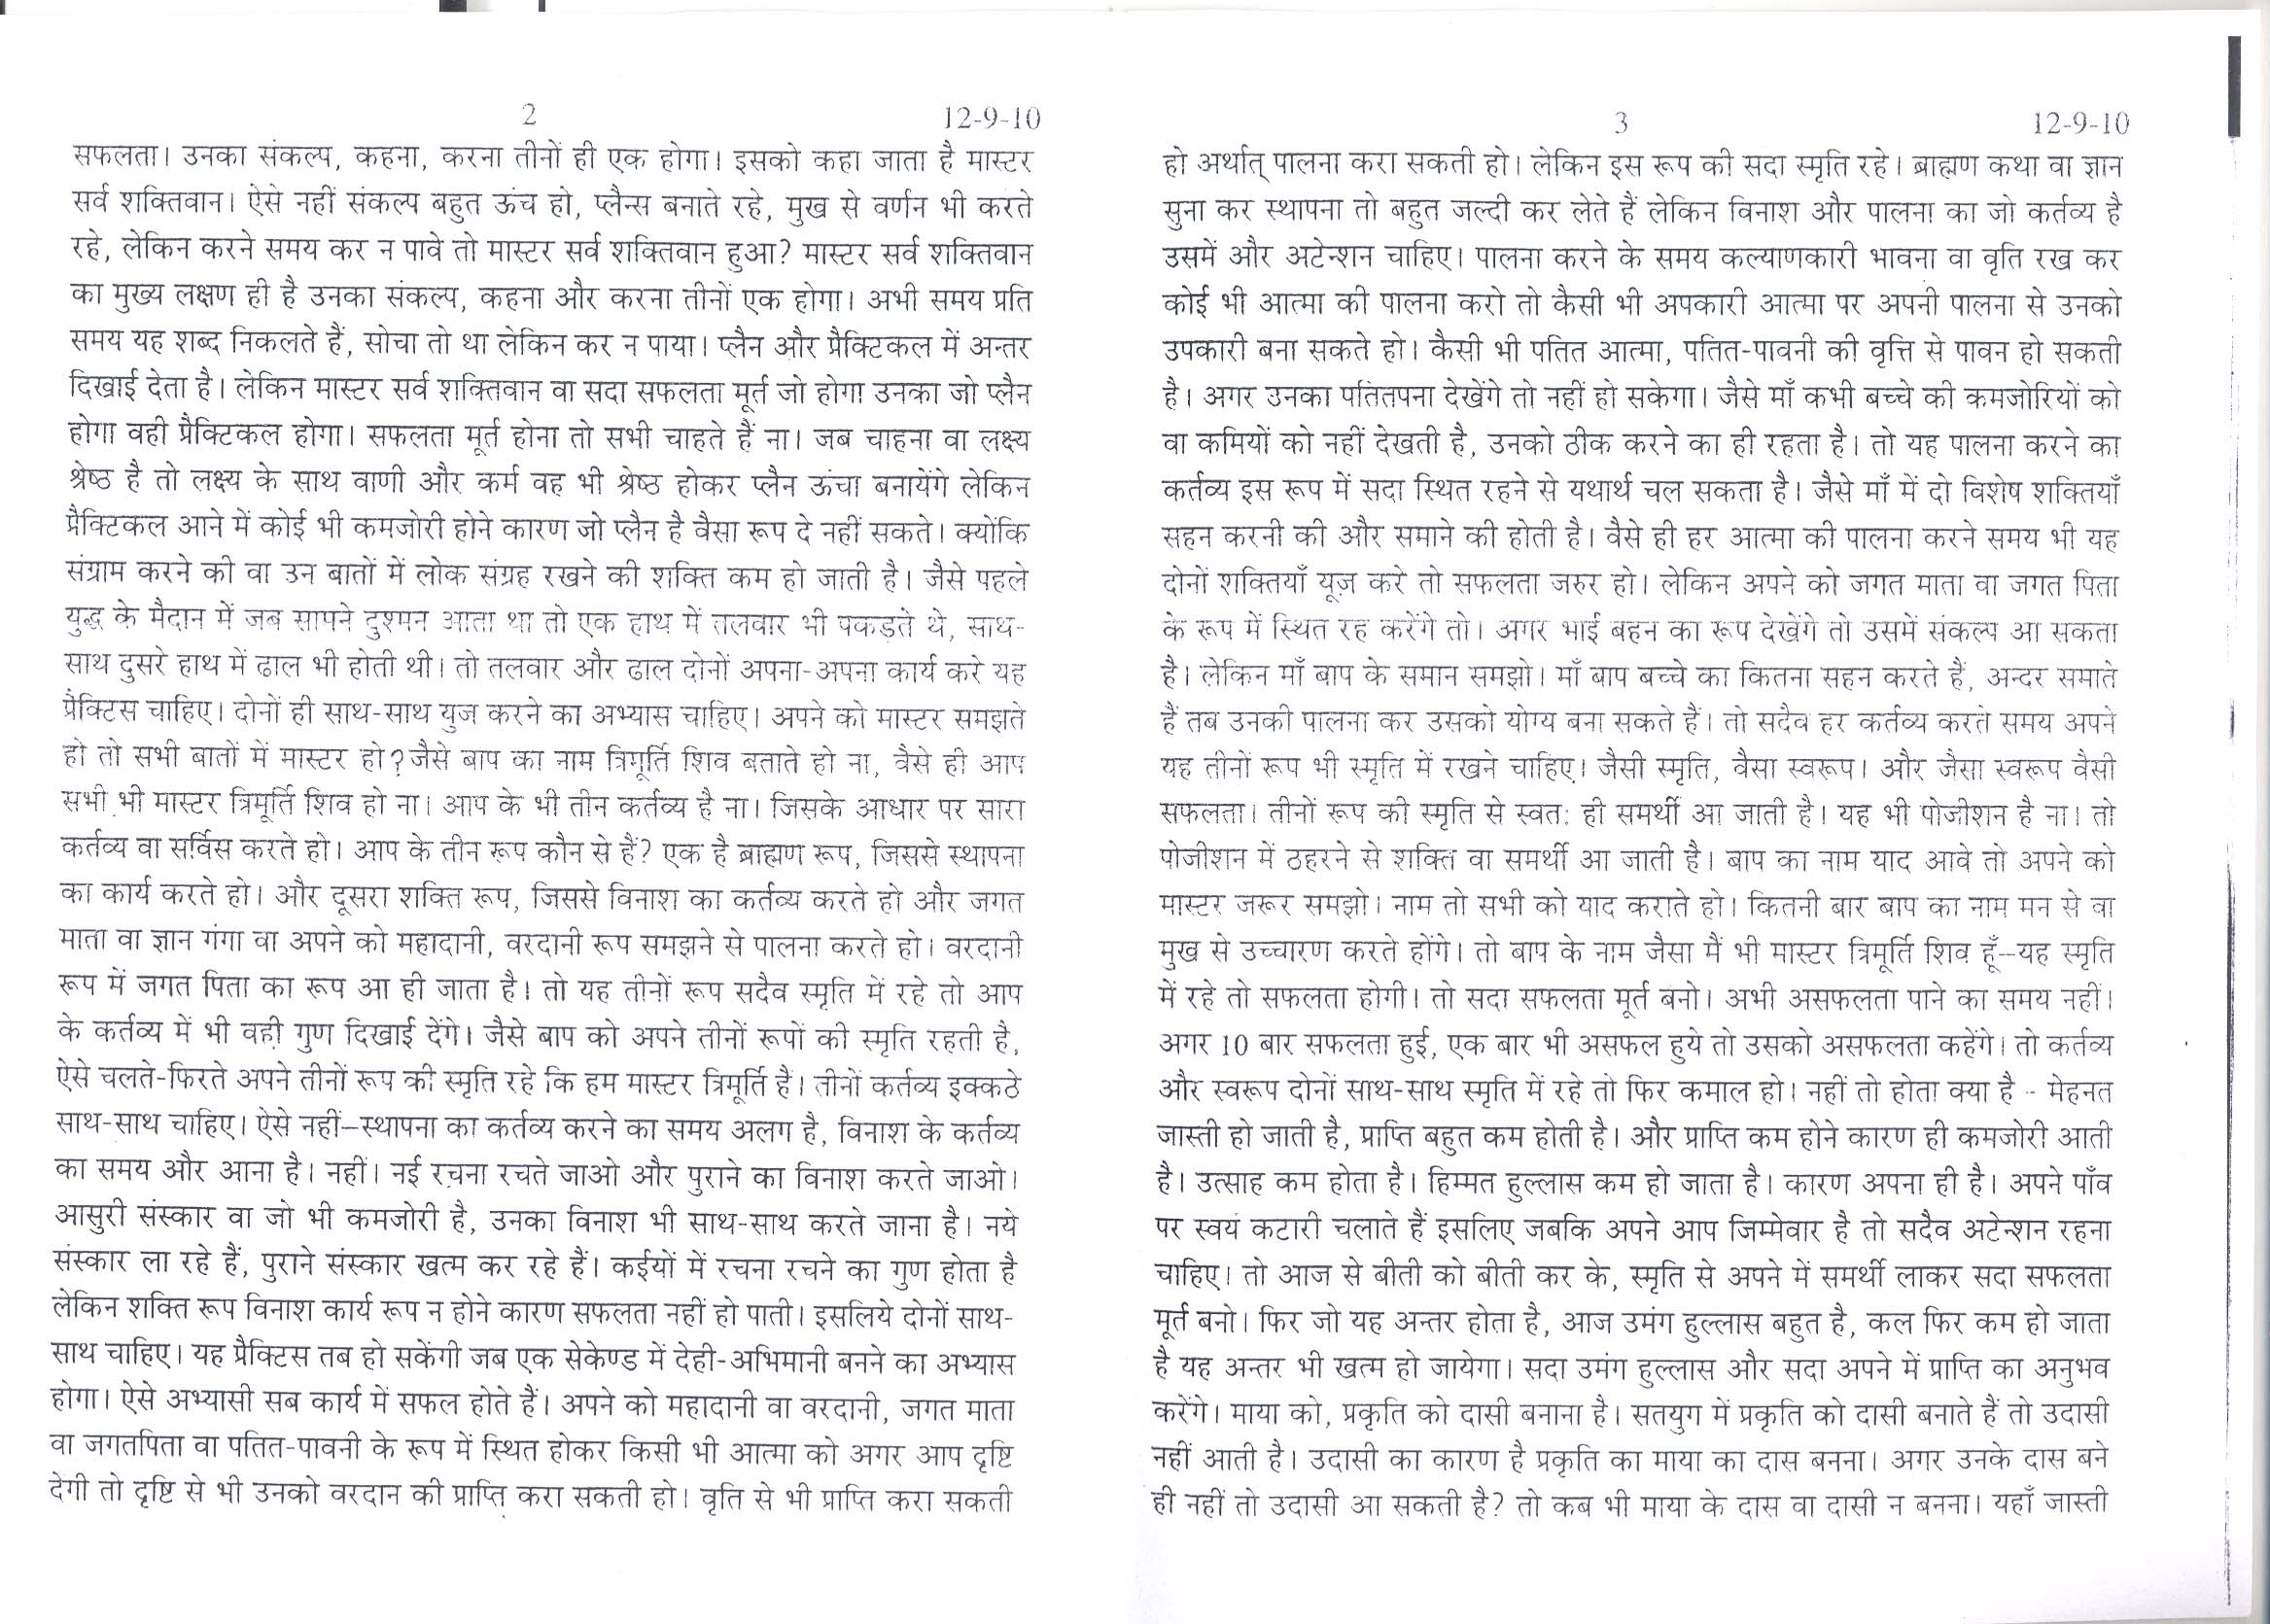 2 12-9-10
सफलता। उनका संकल्प, कहना, करना तीनों ही एक होगा। इसको कहा जाता है मास्टर
सर्व शक्तिवान। ऐसे नहीं संकल्प बहुत ऊंच हो, प्लैन्स बनाते रहे, मुख से वर्णन भी करते
रहे, लेकिन करने समय कर न पावे तो मास्टर सर्व शक्तिवान हुआ? मास्टर सर्व शक्तिवान
का मुख्य लक्षण ही है उनका संकल्प, कहना और करना तीनों एक होगा। अभी समय प्रति
समय यह शब्द निकलते हैं, सोचा तो था लेकिन कर न पाया। प्लैन और प्रैक्टिकल में अन्तर
दिखाई देता है। लेकिन मास्टर सर्व शक्तिवान वा सदा सफलता मूर्त जो होगा उनका जो प्लैन
होगा वही प्रैक्टिकल होगा। सफलता मूर्त होना तो सभी चाहते हैं ना। जब चाहना वा लक्ष्य
श्रेष्ठ है तो लक्ष्य के साथ वाणी और कर्म वह भी श्रेष्ठ होकर प्लैन ऊंचा बनायेंगे लेकिन
प्रैक्टिकल आने में कोई भी कमजोरी होने कारण जो प्लैन है वैसा रूप दे नहीं सकते। क्योंकि
संग्राम करने की वा उन बातों में लोक संग्रह रखने की शक्ति कम हो जाती है। जैसे पहले
युद्ध के मैदान में जब सापने दुश्मन आता था तो एक हाथ में तलवार भी पकड़ते थे, साथ-
साथ दुसरे हाथ में ढाल भी होती थी। तो तलवार और ढाल दोनों अपना-अपना कार्य करे यह
प्रैक्टिस चाहिए। दोनों ही साथ-साथ युज करने का अभ्यास चाहिए। अपने को मास्टर समझते
हो तो सभी बातों में मास्टर हो? जैसे बाप का नाम त्रिमूर्ति शिव बताते हो ना, वैसे ही आप
सभी भी मास्टर त्रिमूर्ति शिव हो ना। आप के भी तीन कर्तव्य है ना। जिसके आधार पर सारा
कर्तव्य वा सर्विस करते हो। आप के तीन रूप कौन से हैं? एक है ब्राह्मण रूप, जिससे स्थापना
का कार्य करते हो। और दूसरा शक्ति रूप, जिससे विनाश का कर्तव्य करते हो और जगत
माता वा ज्ञान गंगा वा अपने को महादानी, वरदानी रूप समझने से पालना करते हो। वरदानी
रूप में जगत पिता का रूप आ ही जाता है। तो यह तीनों रूप सदैव स्मृति में रहे तो आप
के कर्तव्य में भी वही गुण दिखाई देंगे। जैसे बाप को अपने तीनों रूपों की स्मृति रहती है,
ऐसे चलते-फिरते अपने तीनों रूप की स्मृति रहे कि हम मास्टर त्रिमूर्ति हैं। तीनों कर्तव्य इक्कठे
साथ-साथ चाहिए। ऐसे नहीं–स्थापना का कर्तव्य करने का समय अलग है, विनाश के कर्तव्य
का समय और आना है। नहीं। नई रचना रचते जाओ और पुराने का विनाश करते जाओ।
आसुरी संस्कार वा जो भी कमजोरी है, उनका विनाश भी साथ-साथ करते जाना है। नये
संस्कार ला रहे हैं, पुराने संस्कार खत्म कर रहे हैं। कईयों में रचना रचने का गुण होता है
लेकिन शक्ति रूप विनाश कार्य रूप न होने कारण सफलता नहीं हो पाती। इसलिये दोनों साथ-
साथ चाहिए। यह प्रैक्टिस तब हो सकेंगी जब एक सेकेण्ड में देही-अभिमानी बनने का अभ्यास
होगा। ऐसे अभ्यासी सब कार्य में सफल होते हैं। अपने को महादानी वा वरदानी, जगत माता
वा जगतपिता वा पतित-पावनी के रूप में स्थित होकर किसी भी आत्मा को अगर आप दृष्टि
देगी तो दृष्टि से भी उनको वरदान की प्राप्ति करा सकती हो। वृति से भी प्राप्ति करा सकती
3 12-9-10
हो अर्थात् पालना करा सकती हो। लेकिन इस रूप की सदा स्मृति रहे। ब्राह्मण कथा वा ज्ञान
सुना कर स्थापना तो बहुत जल्दी कर लेते हैं लेकिन विनाश और पालना का जो कर्तव्य है
उसमें और अटेन्शन चाहिए। पालना करने के समय कल्याणकारी भावना वा वृति रख कर
कोई भी आत्मा की पालना करो तो कैसी भी अपकारी आत्मा पर अपनी पालना से उनको
उपकारी बना सकते हो। कैसी भी पतित आत्मा, पतित-पावनी की वृत्ति से पावन हो सकती
है। अगर उनका पतितपना देखेंगे तो नहीं हो सकेगा। जैसे माँ कभी बच्चे की कमजोरियों को
वा कमियों को नहीं देखती है, उनको ठीक करने का ही रहता है। तो यह पालना करने का
कर्तव्य इस रूप में सदा स्थित रहने से यथार्थ चल सकता है। जैसे माँ में दो विशेष शक्तियाँ
सहन करनी की और समाने की होती है। वैसे ही हर आत्मा की पालना करने समय भी यह
दोनों शक्तियाँ यूज़ करे तो सफलता जरुर हो। लेकिन अपने को जगत माता वा जगत पिता
के रूप में स्थित रह करेंगे तो। अगर भाई बहन का रूप देखेंगे तो उसमें संकल्प आ सकता
है। लेकिन माँ बाप के समान समझो। माँ बाप बच्चे का कितना सहन करते हैं, अन्दर समाते
हैं तब उनकी पालना कर उसको योग्य बना सकते हैं। तो सदैव हर कर्तव्य करते समय अपने
यह तीनों रूप भी स्मृति में रखने चाहिए। जैसी स्मृति, वैसा स्वरूप। और जैसा स्वरूप वैसी
सफलता। तीनों रूप की स्मृति से स्वत: ही समर्थी आ जाती है। यह भी पोजीशन है ना। तो
पोजीशन में ठहरने से शक्ति वा समर्थी आ जाती है। बाप का नाम याद आवे तो अपने को
मास्टर जरूर समझो। नाम तो सभी को याद कराते हो। कितनी बार बाप का नाम मन से वा
मुख से उच्चारण करते होंगे। तो बाप के नाम जैसा मैं भी मास्टर त्रिमूर्ति शिव हूँ–यह स्मृति
में रहे तो सफलता होगी। तो सदा सफलता मूर्त बनो। अभी असफलता पाने का समय नहीं।
अगर 10 बार सफलता हुई, एक बार भी असफल हुये तो उसको असफलता कहेंगे। तो कर्तव्य
और स्वरूप दोनों साथ-साथ स्मृति में रहे तो फिर कमाल हो। नहीं तो होता क्या है - मेहनत
जास्ती हो जाती है, प्राप्ति बहुत कम होती है। और प्राप्ति कम होने कारण ही कमजोरी आती
है। उत्साह कम होता है। हिम्मत हुल्लास कम हो जाता है। कारण अपना ही है। अपने पाँव
पर स्वयं कटारी चलाते हैं इसलिए जबकि अपने आप जिम्मेवार है तो सदैव अटेन्शन रहना
चाहिए। तो आज से बीती को बीती कर के, स्मृति से अपने में समर्थी लाकर सदा सफलता
मूर्त बनो। फिर जो यह अन्तर होता है, आज उमंग हुल्लास बहुत है, कल फिर कम हो जाता
है यह अन्तर भी खत्म हो जायेगा। सदा उमंग हुल्लास और सदा अपने में प्राप्ति का अनुभव
करेंगे। माया को, प्रकृति को दासी बनाना है। सतयुग में प्रकृति को दासी बनाते हैं तो उदासी
नहीं आती है। उदासी का कारण है प्रकृति का माया का दास बनना। अगर उनके दास बने
ही नहीं तो उदासी आ सकती है? तो कब भी माया के दास वा दासी न बनना। यहाँ जास्ती